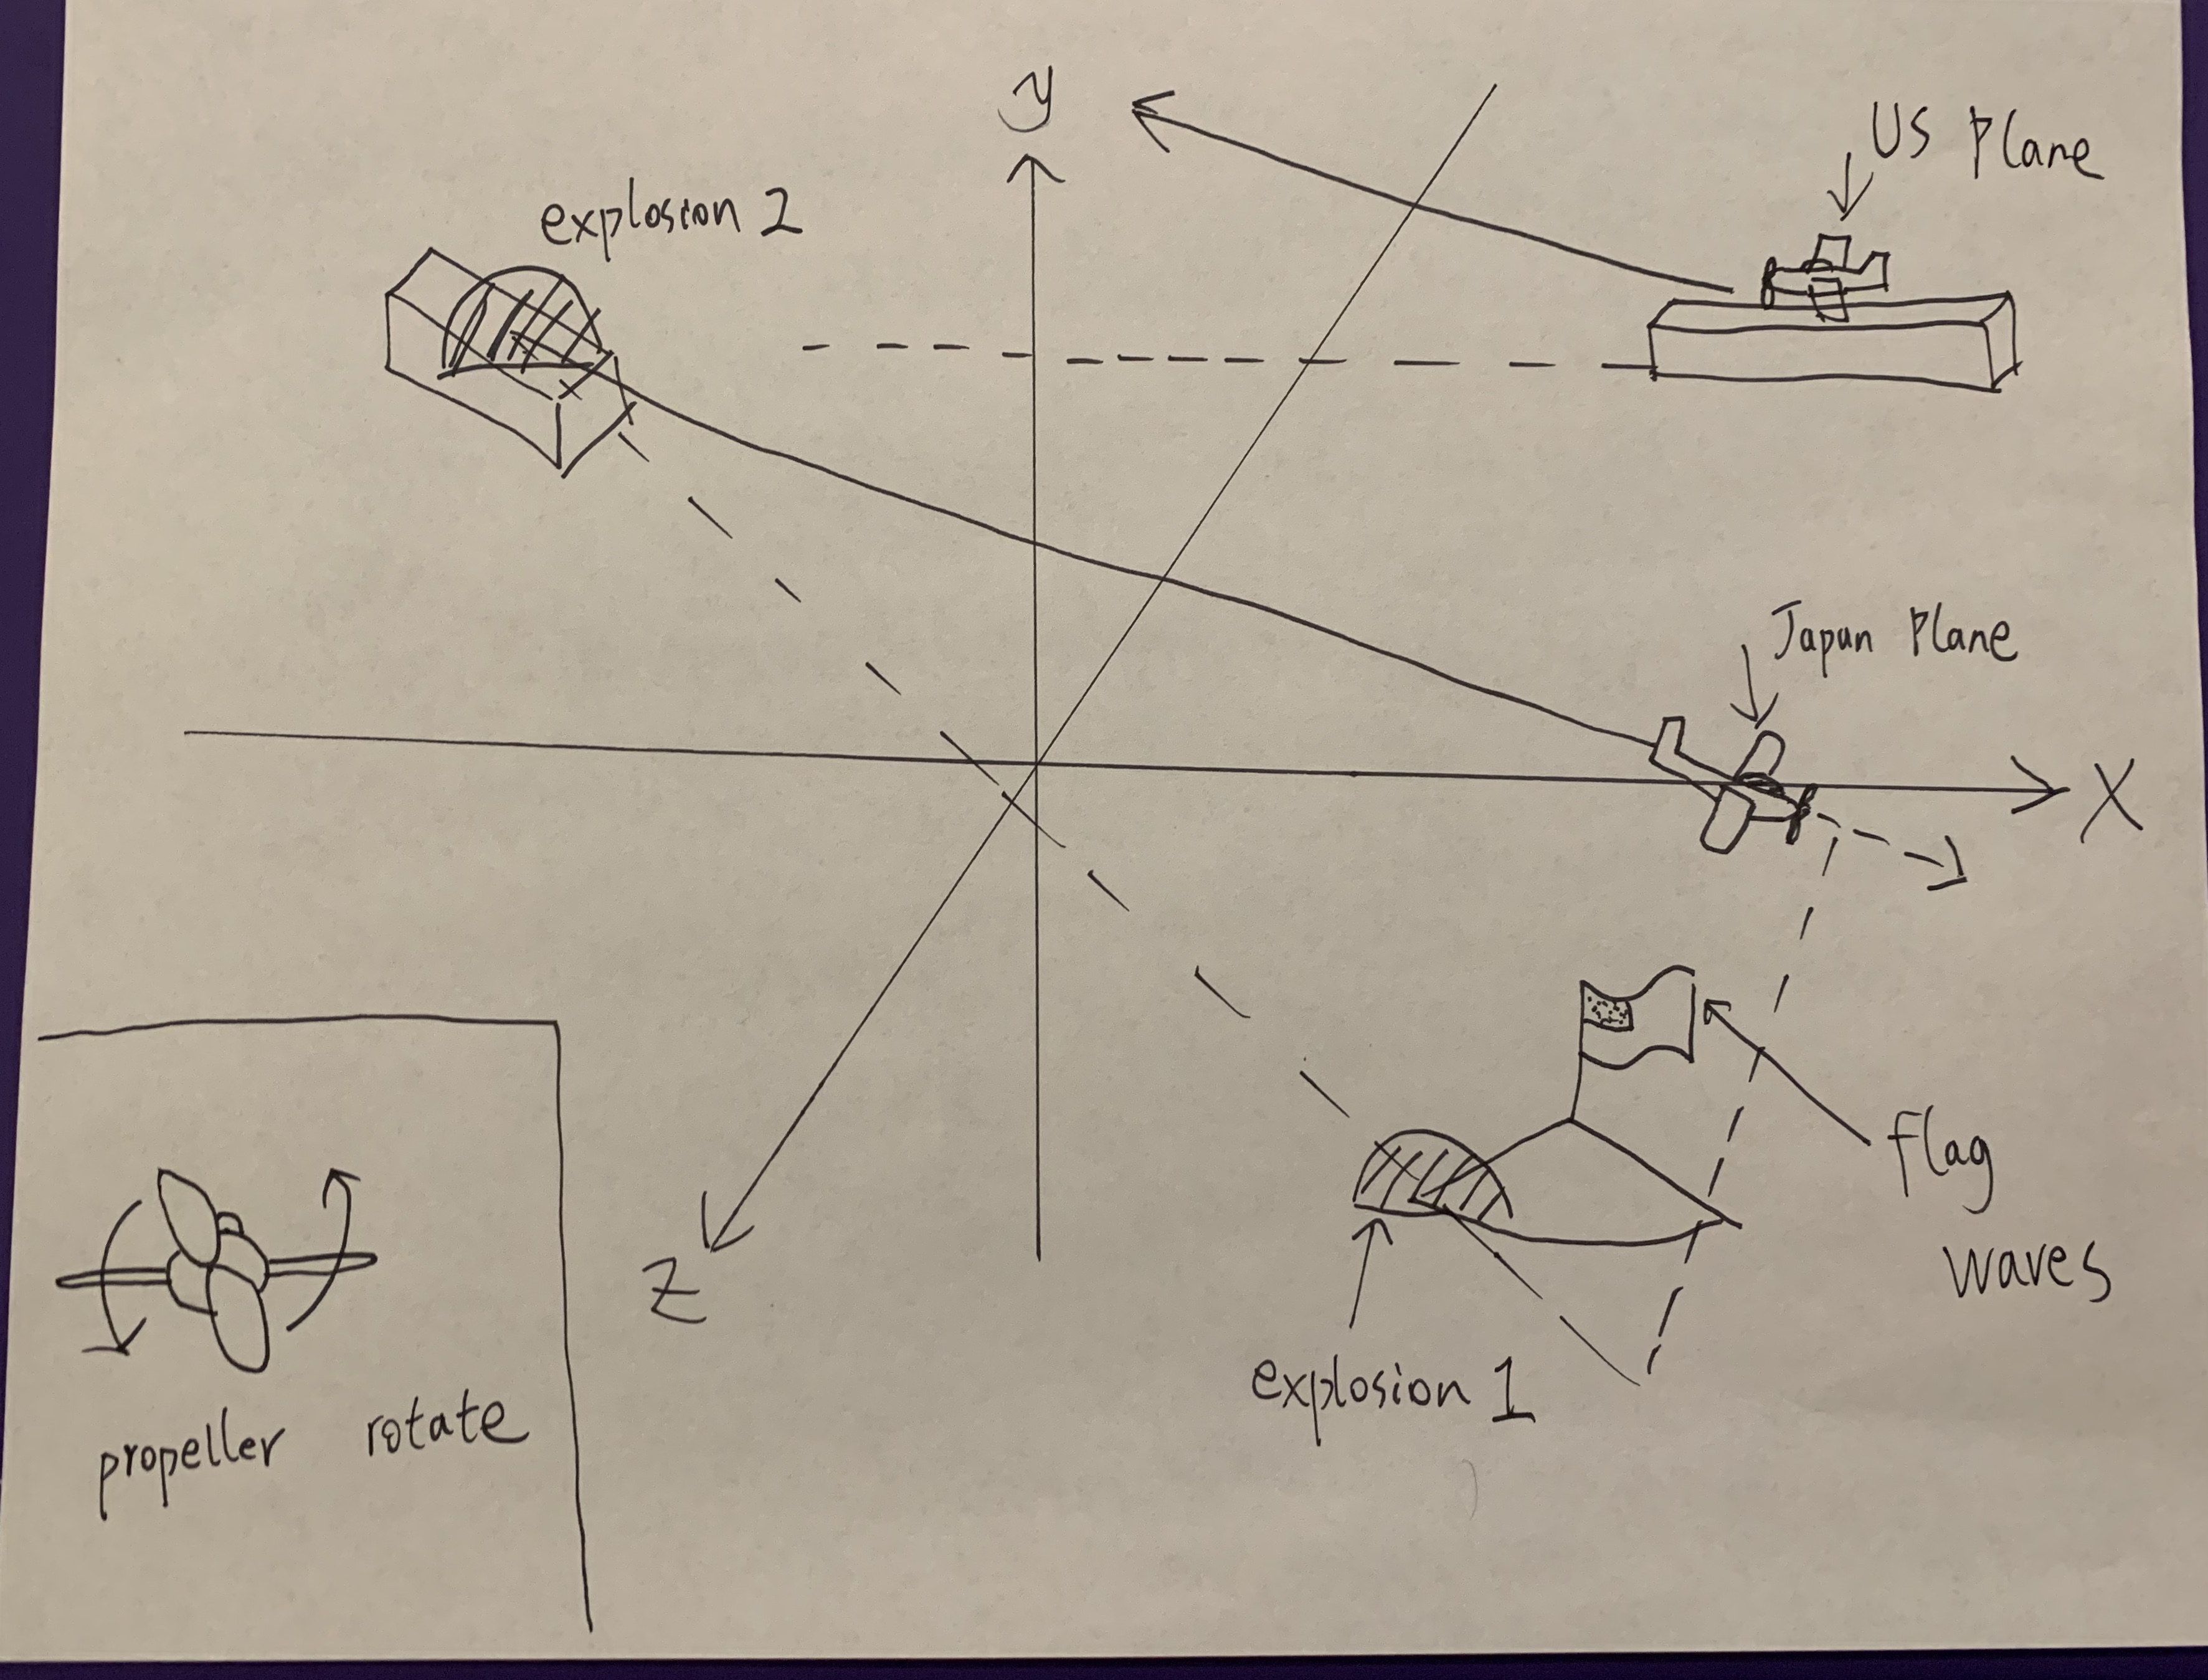 y
US Plane
explosion 2
Japan Plane
X
flag
waves
Z
explosion 1
propeller rotate